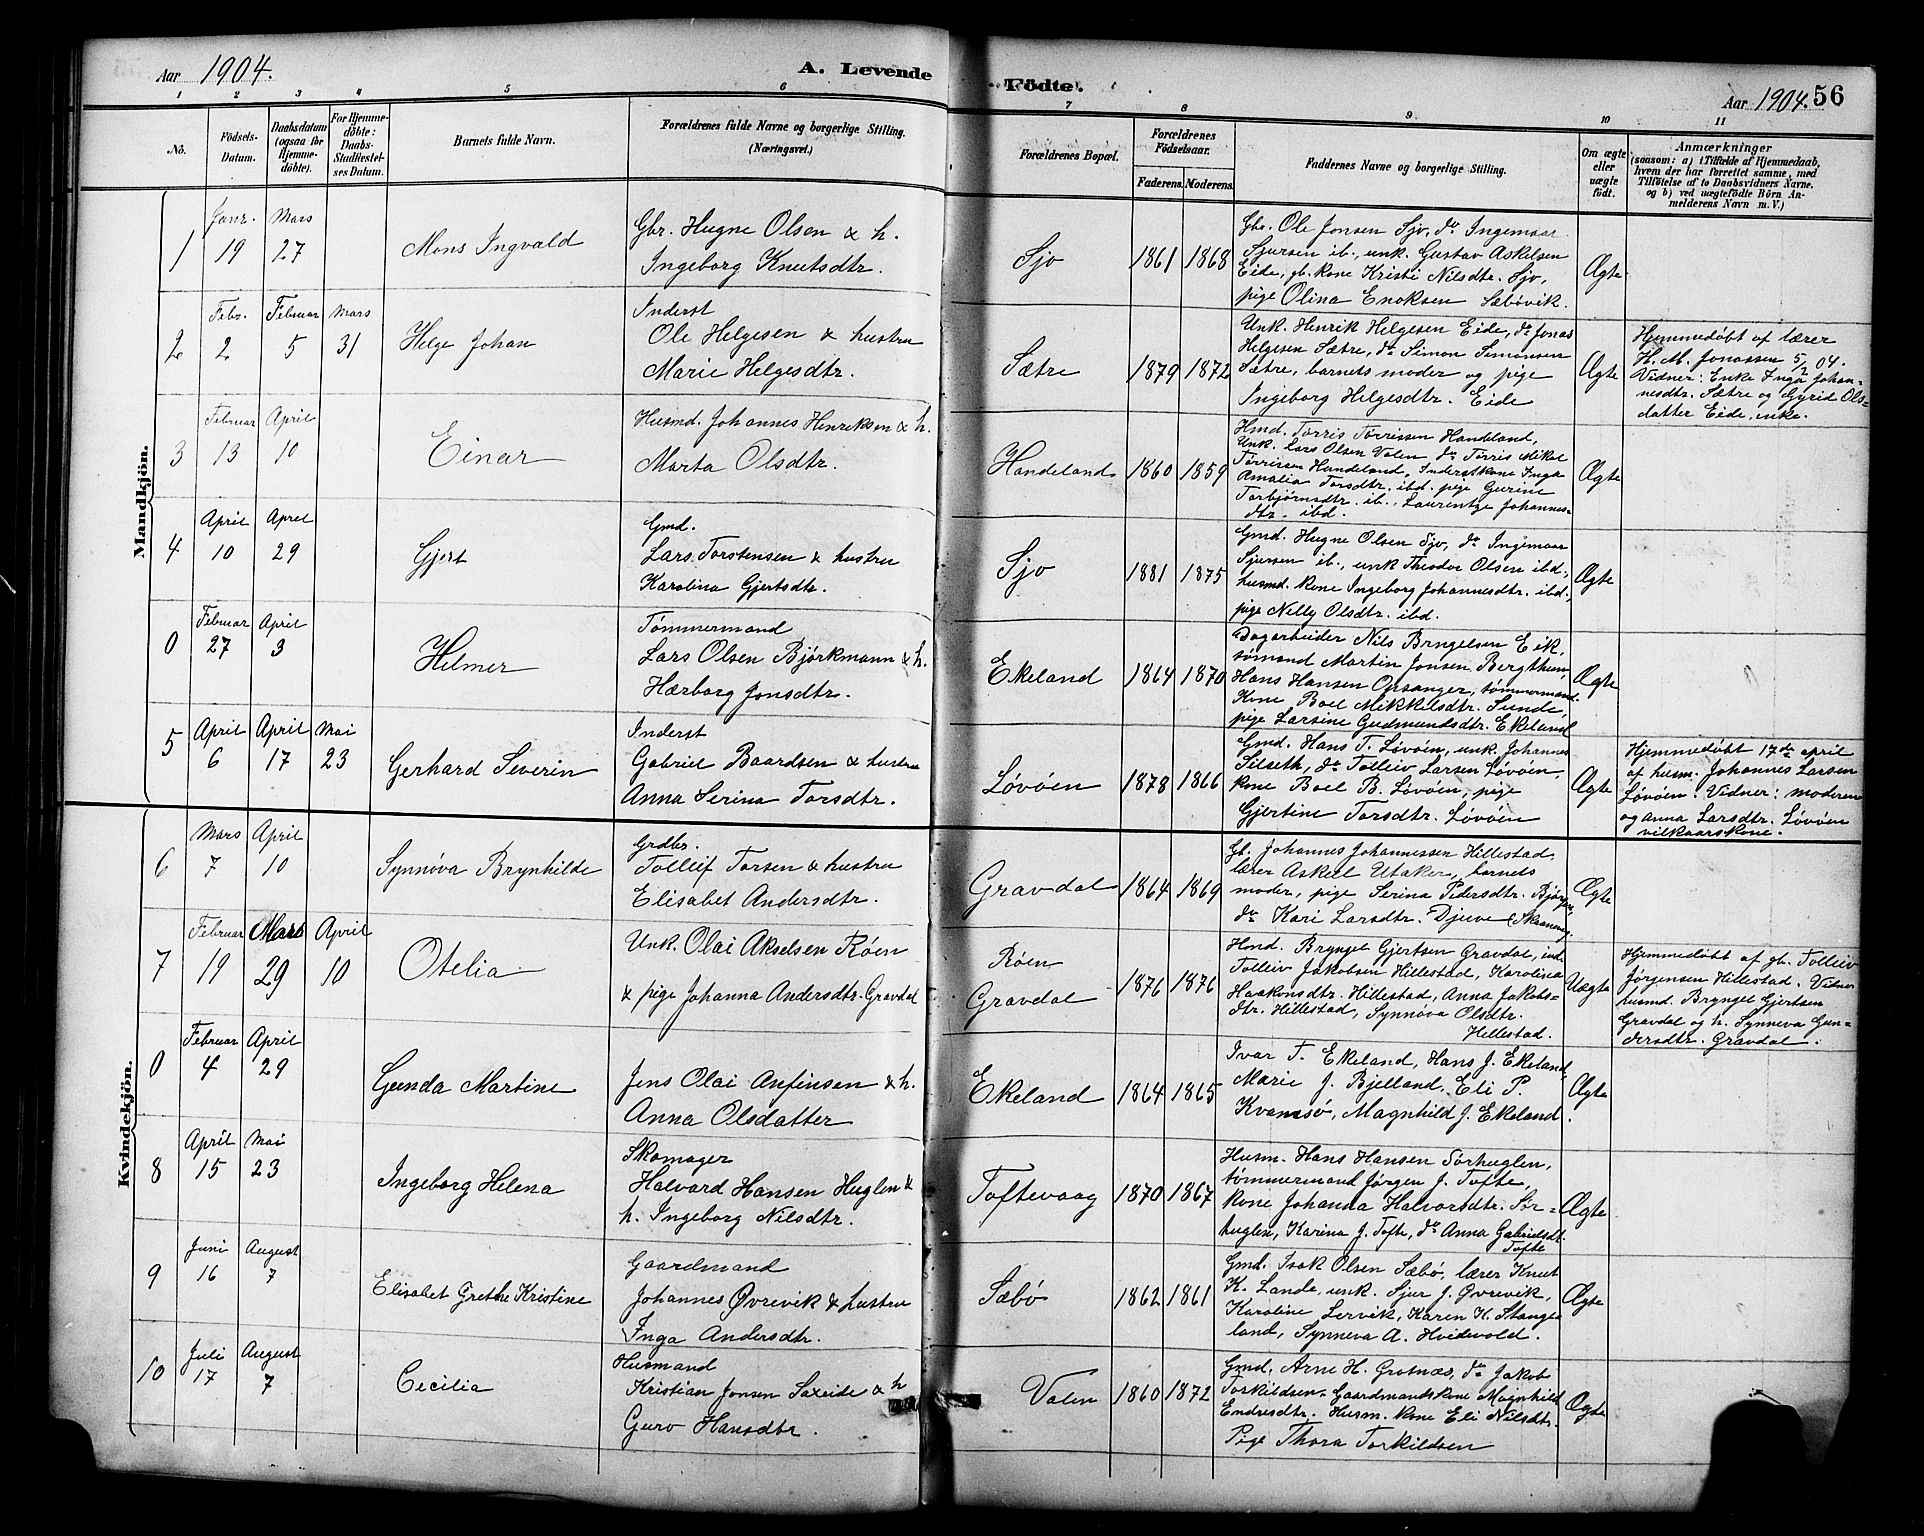 Aar 1904.
A. Levende
Födte.
Aar 1904. 56
1 2 3 4 5 6 7 8 9 10 11
No.
Födsels-
Datum.
Daabsdatum
(ogsaa for
Hjemme-
døbte).
For Hjemme-
døbte:
Daabs-
Stadfæstel-
ses Datum.
Barnets fulde Navn.
Forældrenes fulde Navne og borgerlige Stilling.
(Næringsvei.)
Forældrenes Bopæl.
Forældrenes
Födselsaar.
Faderens. Moderens.
Faddernes Navne og borgerlige Stilling.
Om ægte
eller
uægte
født.
Anmærkninger
(saasom: a) i Tilfælde af Hjemmedaab,
hvem der har forrettet samme, med
Tilföielse af to Daabsvidners Navne.
og b) ved uægtefödte Börn An-
melderens Navn m. V.)
Mandkjön.
1
Janr. 19
Mars 27
Mons Ingvald
Gbr. Hugne Olsen & h.
Ingeborg Knutsdtr.
Sjo
1861 1868
Gbr. Ole Jonsen Sjo, do Ingemaar
Sjursen ib., unk. Gustav Askelsen
Eide, gb. kone Kristi Nilsdtr. Sjo,
pige Olina Enoksen Sæbövik.
Ægte
2
Febr. 2
Februar 5
Mars 31
Helge Johan
Inderst
Ole Helgesen & hustru
Marie Helgesdtr.
Sætre
1879 1872
Unk. Henrik Helgesen Eide, do Jonas
Helgesen Sætre, do Simon Simonsen
Sætre, barnets moder og pige
Ingeborg Helgesdtr. Eide
Ægte
Hjemmedøbt af lærer
H. M. Jonassen 5/2 04.
Vidner: Enke Inga Johan-
nesdtr. Sætre og Gyrid Ols-
datter Eide, enke.
3
Februar 13
April 10
Einar
Husmd. Johannes Henriksen & h.
Marta Olsdtr.
Handeland
1860 1859
Hmd. Torris Torrissen Handeland,
Unk. Lars Olsen Valen, do Torris Mikal
Torrissen Handeland, Inderstkone Inga
Amalia Torsdtr. ibd. pige Gurine
Torbjørnsdtr. ib., Laurentze Johannes-
dtr. ibd.
Ægte
4
April 10
April 29
Gjert
Gmd.
Lars Torstensen & hustru
Karolina Gjertsdtr.
Sjo
1881 1875
Gmd. Hugne Olsen Sjo, do Ingemaar
Sjursen ib., unk Theodor Olsen ibd.,
husmd. kone Ingeborg Johannesdtr. ibd.,
pige Nelly Olsdtr. ibd.
Ægte
0
Februar 27
April 3
Hilmer
Tømmermand
Lars Olsen Bjørkmann & h.
Hærborg Jonsdtr.
Ekeland
1864 1870
Dagarbeider Nils Brngelsen Eik,
sømand Martin Jonsen Bergthun,
Hans Hansen Opsanger, tømmermand.
Kone Boel Mikkilsdtr. Sunde,
pige Larsine Gudmundsdtr. Ekeland
Ægte
5
April 6
April 17
Mai 23
Gerhard Severin
Inderst
Gabriel Baardsen & hustru
Anna Serina Torsdtr.
Løvöen
1878 1866
Gmd. Hans T. Løvöen, unk. Johannes
Silseth, do Tolleiv Larsen Løvöen,
kone Boel B. Løvöen, pige
Gjertine Torsdtr. Løvöen
Ægte
Hjemmedøbt 17de april
af husm. Johannes Larsen
Løvöen. Vidner: moderen
og Anna Larsdtr. Løvöen
vilkaarskone.
Kvindekjön.
6
Mars 7
April 10
Synnöva Brynhilde
Grdbr.
Tolleif Torsen & hustru
Elisabet Andersdtr.
Gravdal
1864 1869
Gb. Johannes Johannessen Hillestad,
lærer Askell Utaker, barnets
moder, pige Serina Pedersdtr.
do Kari Larsdtr. Djuve
Ægte
7
Februar 19
Mars 29
April 10
Otelia
Unk. Olai Akselsen Röen
& pige Johanna Andersdtr. Gravdal
Röen
Gravdal
1876 1876
Hmd. Bryngel Gjertsen Gravdal, ind.
Tolleiv Jakobsen Hillestad, Karolina
Haakonsdtr. Hillestad, Anna Jakobs-
dtr. Hillestad, Synnøva Olsdtr.
Hillestad.
Uægte
Hjemmedøbt af gb. Tolleiv
Jørgensen Hillestad. Vidner
husmd. Bryngel Gjertsen
Gravdal og h. Synneva Gun-
dersdtr. Gravdal.
0
Februar 4
April 29
Gunda Martine
Jens Olai Anfinsen & h.
Anna Olsdatter
Ekeland
1864 1865
Ivar T. Ekeland, Hans J. Ekeland,
Marie J. Bjelland, Eli P.
Kvamsö, Magnhild J. Ekeland.
Ægte
8
April 15
Mai 23
Ingeborg Helena
Skomager
Halvard Hansen Huglen &
h. Ingeborg Nilsdtr.
Toftevaag
1870 1867
Husm. Hans Hansen Sörhuglen,
tømmermand Jørgen J. Tofte,
kone Johanna Halvorsdtr. Sör-
huglen, Karina J. Tofte, do Anna Gabrielsdt.
Tofte
Ægte
9
Juni 16
August 7
Elisabet Grethe Kristine
Gaardmand
Johannes Øvrevik & hustru
Inga Andersdtr.
Sæbö
1862 1861
Gmd. Isak Olsen Sæbö, lærer Knut
K. Lande, unk. Sjur J. Øvrevik,
Karoline Lervik, Karen K. Stange-
land, Synneva A. Hvidevold.
Ægte
10
Juli 17
August 7
Cecilia
Husmand
Kristian Jonsen Saxeide & h
Guro Hansdtr.
Valen
1860 1872
Gmd. Arne H. Grotnæs, do Jakob
Torkildsen. Gaardmandskone Magnhild
Endresdtr. Husm. kone Eli Nilsdtr.
Pige Thora Torkildsen
Ægte